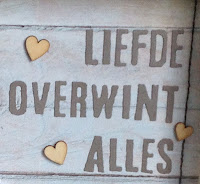 LIEFDE
OVERWINT
ALLES